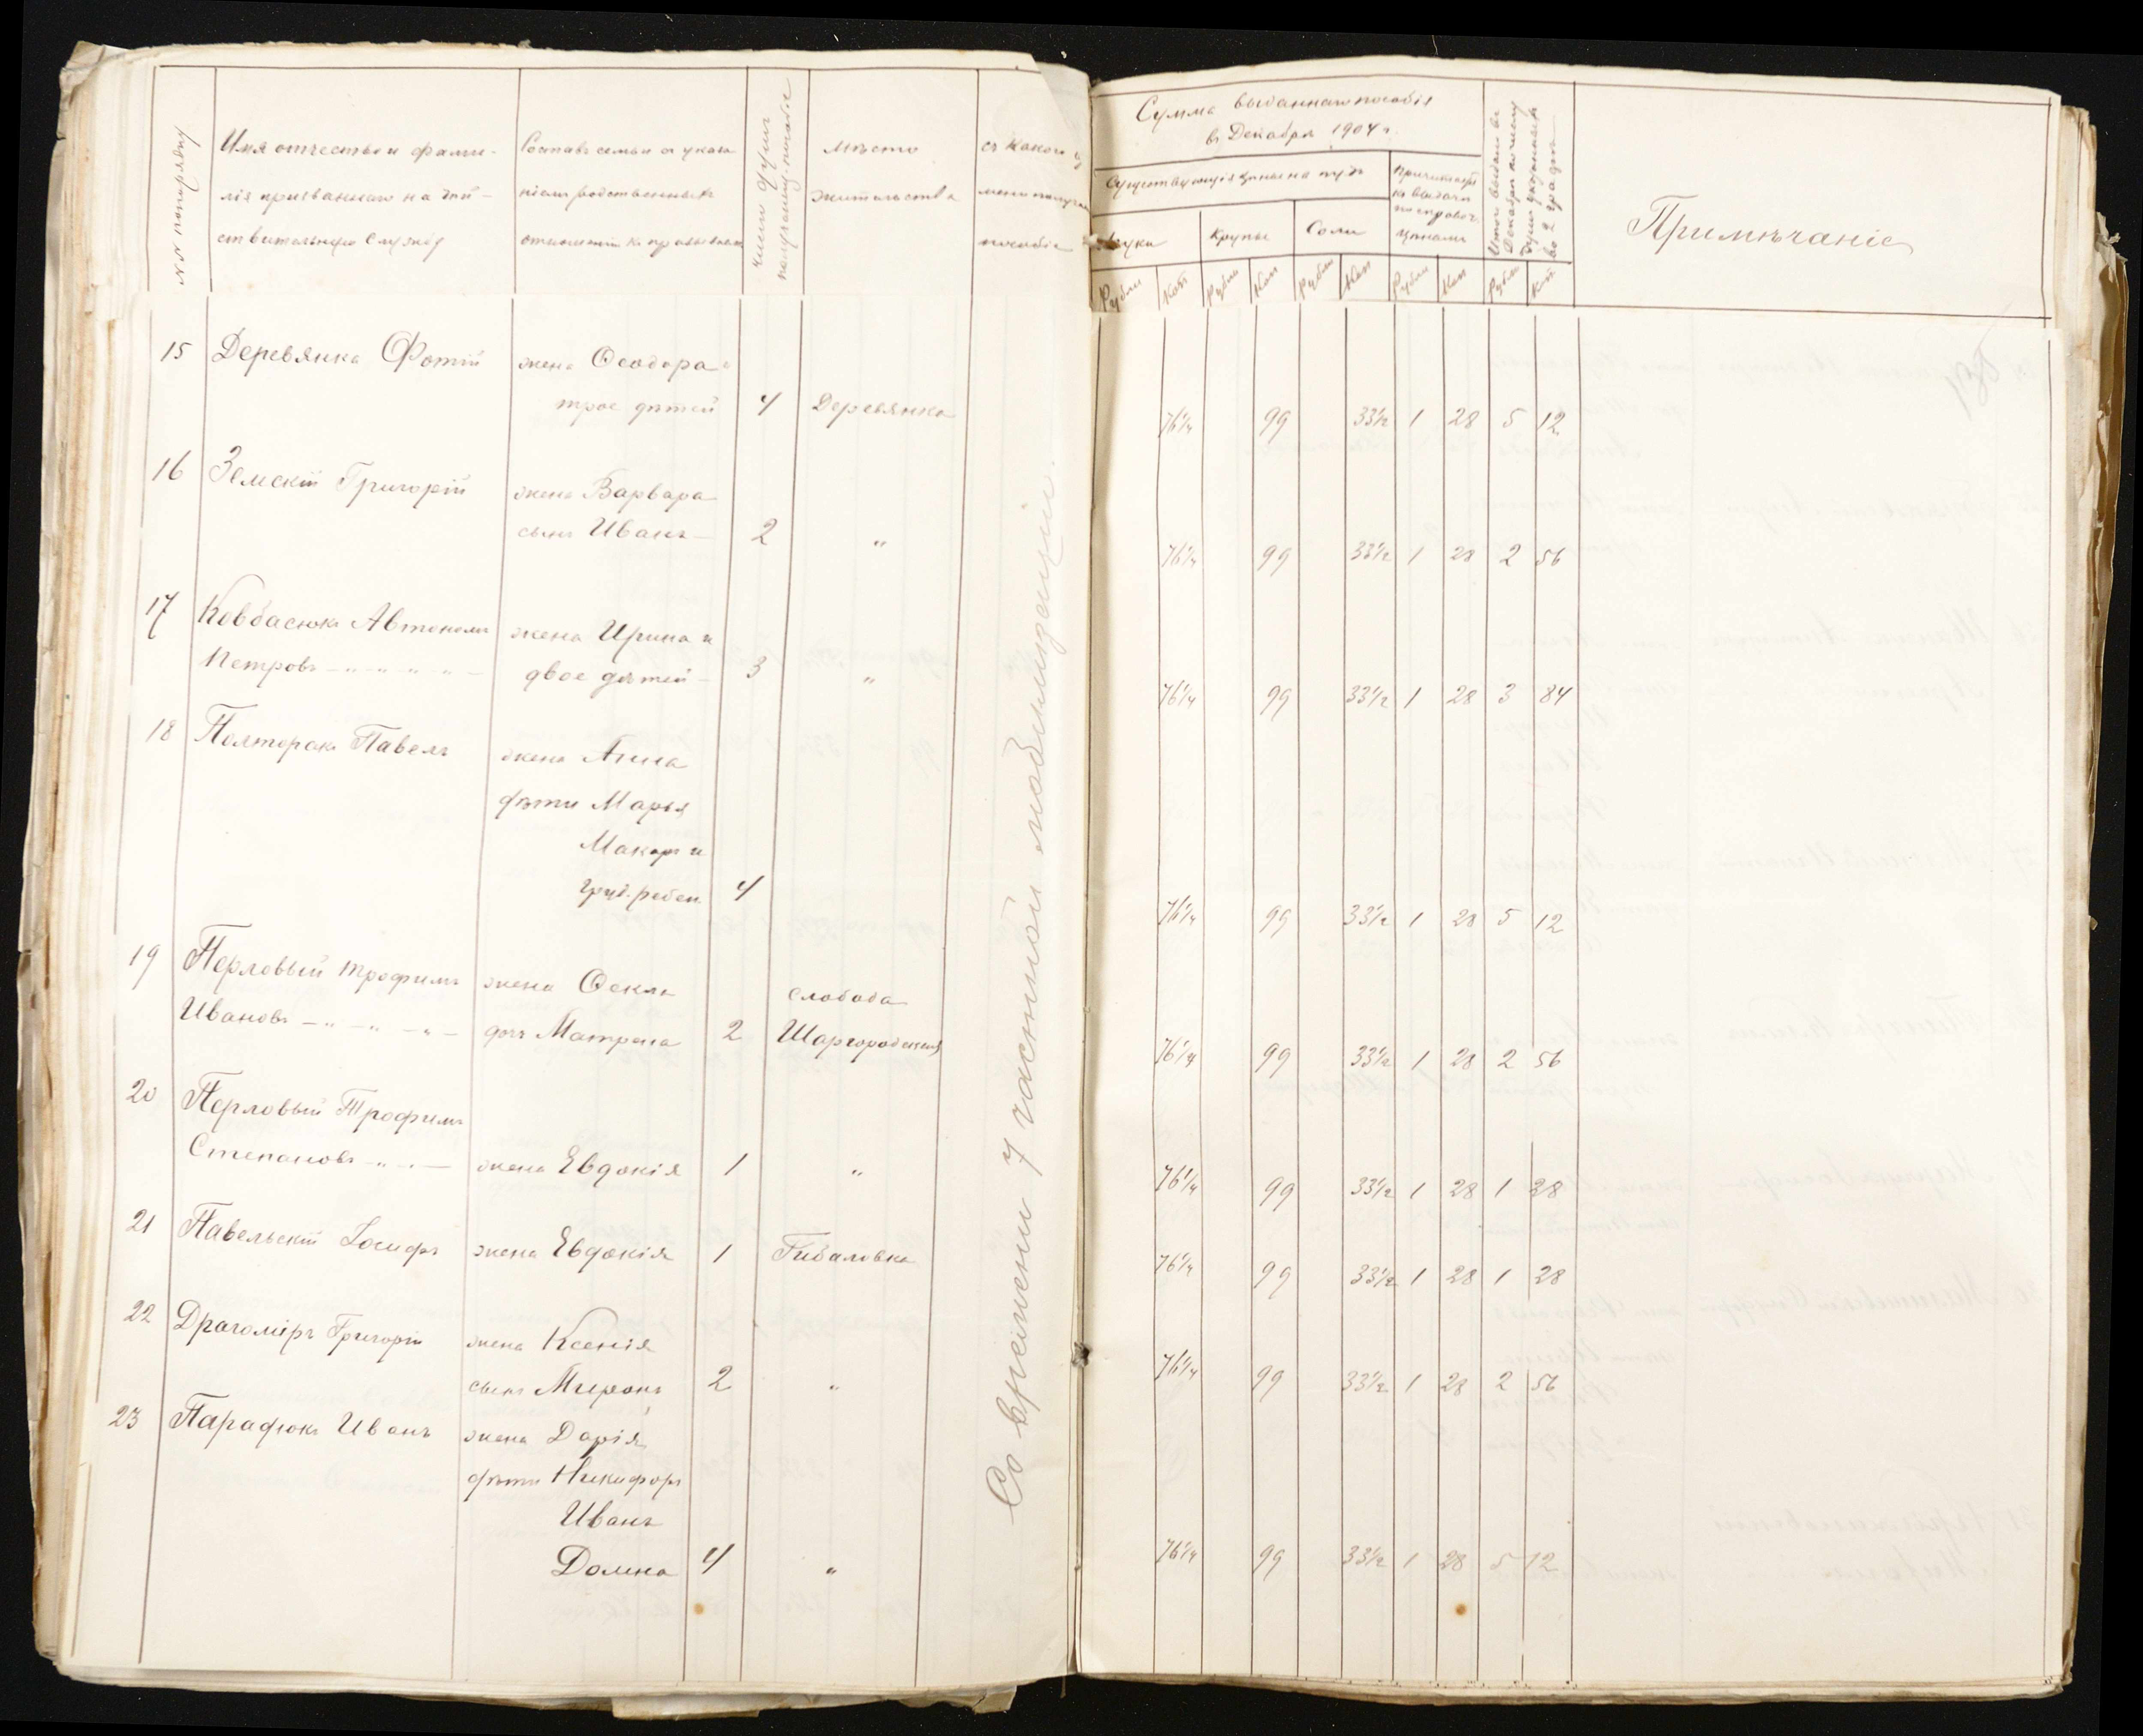 №№ попорядку
Имя отчество и фами-
лія призваннаго на дѣй-
ствительную службу
Составъ семьи съ указа
ніемъ родственныхъ
отношеній къ призванном
число душъ
получающ. пособіе
Мѣсто
жительства
съ какого
мени получа
пособіе
Сумма выданнаго пособія
въ Декабрѣ 1904 г.
Существующія цѣны на пудъ
Муки
Крупы
Соли
Причитает
къ выдачи
по справоч.
цѣнамъ
Итого выдано въ
Декабрѣ по числу
душ
Рубли Коп Рубли Коп Рубли Коп Рубли Коп Рубли Коп
Примѣчаніе
15 Деревянко Фотій жена Ѳеодора
трое дѣтей 4 Деревянка 76¼ 99 33½ 1 28 5 12
16 Земскій Григорій жена Варвара
сынъ Иванъ 2 " 76¼ 99 33½ 1 28 2 56
17 Ковбасюкъ Автономъ жена Ирина и
Петровъ — " — " — " — двое дѣтей 3 " 76¼ 99 33½ 1 28 3 84
18 Полторакъ Павелъ жена Анна
дѣти Марья
Макаръ и
груд. ребен 4 76¼ 99 33½ 1 28 5 12
19 Перловый Трофимъ жена Ѳекла слобода
Ивановъ — " — " — " — дочь Матрена 2 Шаргородская 76¼ 99 33½ 1 28 2 56
20 Перловый Трофимъ
Степановъ — " — жена Евдокія 1 " 76¼ 99 33½ 1 28 1 28
21 Павельскій Іосифъ жена Евдокія 1 Гибаловка 76¼ 99 33½ 1 28 1 28
22 Драгоміръ Григорій жена Ксенія
сынъ Миронъ 2 " 76¼ 99 33½ 1 28 2 56
23 Парафіюкъ Иванъ жена Дарія
дѣти Никифоръ
Иванъ
Домна 4 " 76¼ 99 33½ 1 28 5 12
Со времени 7 частной мобилизаціи.